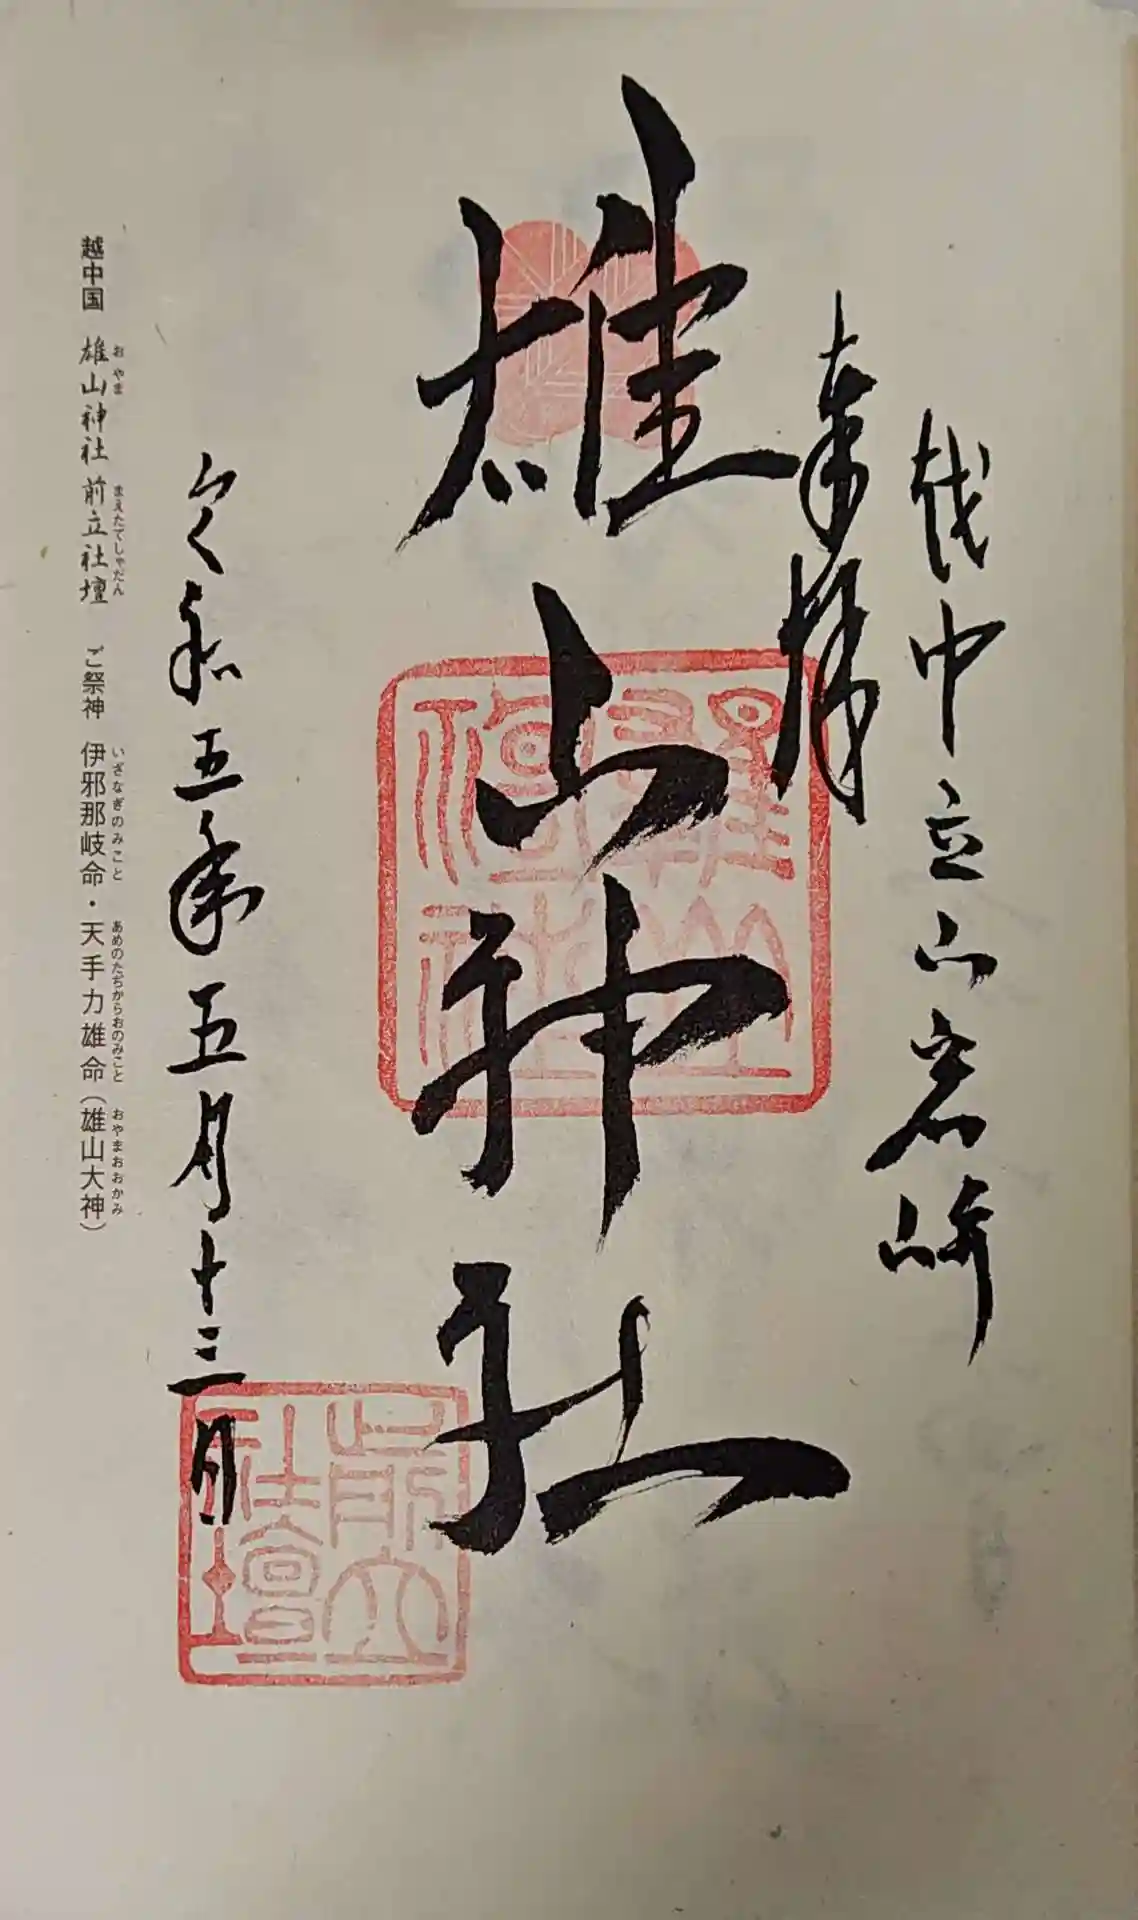 越中立山岩峅
奉拝
雄山神社
雄山神社
前立社壇
令和五年五月十三日
越中国 雄山神社 前立社壇 ご祭神 伊邪那岐命・天手力雄命(雄山大神)
おやま まえたてしゃだん いざなぎのみこと あめのたぢからおのみこと おやまおおかみ